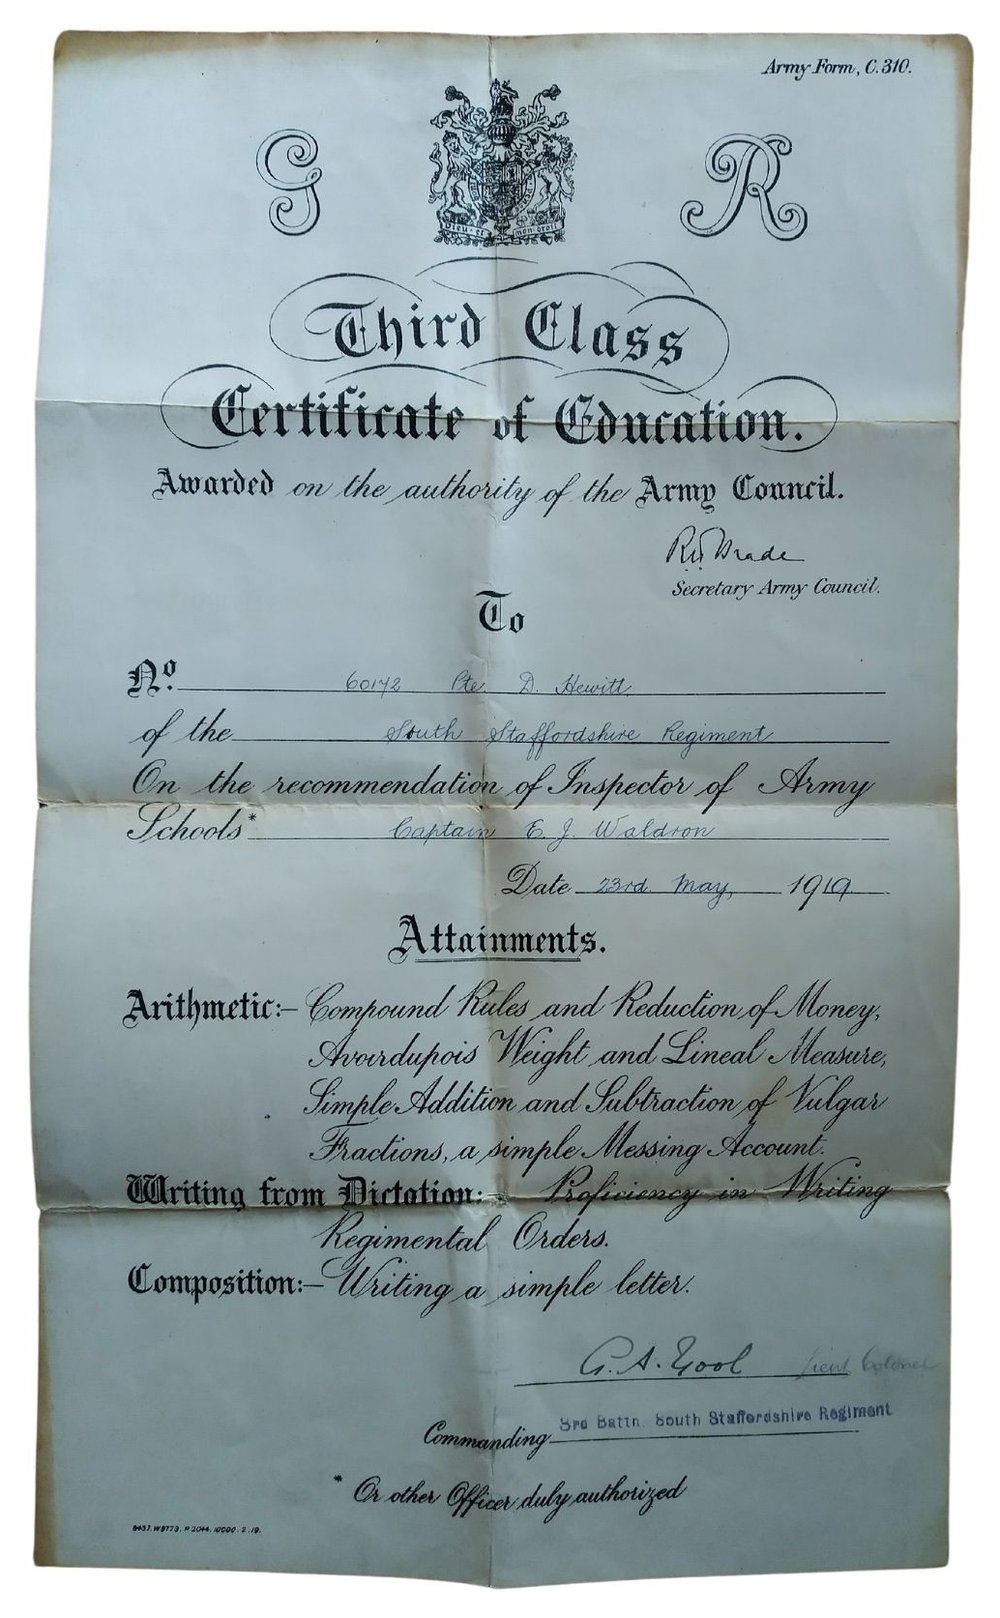 Army Form, C.310.
G R
Dieu et mon droit
Third Class
Certificate of Education.
Awarded on the authority of the Army Council.
Secretary Army Council.
To
No. 60172 Pte D. Hewitt
of the South Staffordshire Regiment
On the recommendation of Inspector of Army
Schools* Captain E. J. Waldron
Date 23rd. May, 1919
Attainments.
Arithmetic:– Compound Rules and Reduction, of Money,
Avoirdupois Weight and Lineal Measure,
Simple Addition and Subtraction of Vulgar
Fractions, a simple Messing Account.
Writing from Dictation:– Proficiency in Writing
Regimental Orders.
Composition:– Writing a simple letter.
G. A. Lieut Colonel
Commanding 3rd Battn. South Staffordshire Regiment
* Or other Officer duly authorized
10000. 2.19.